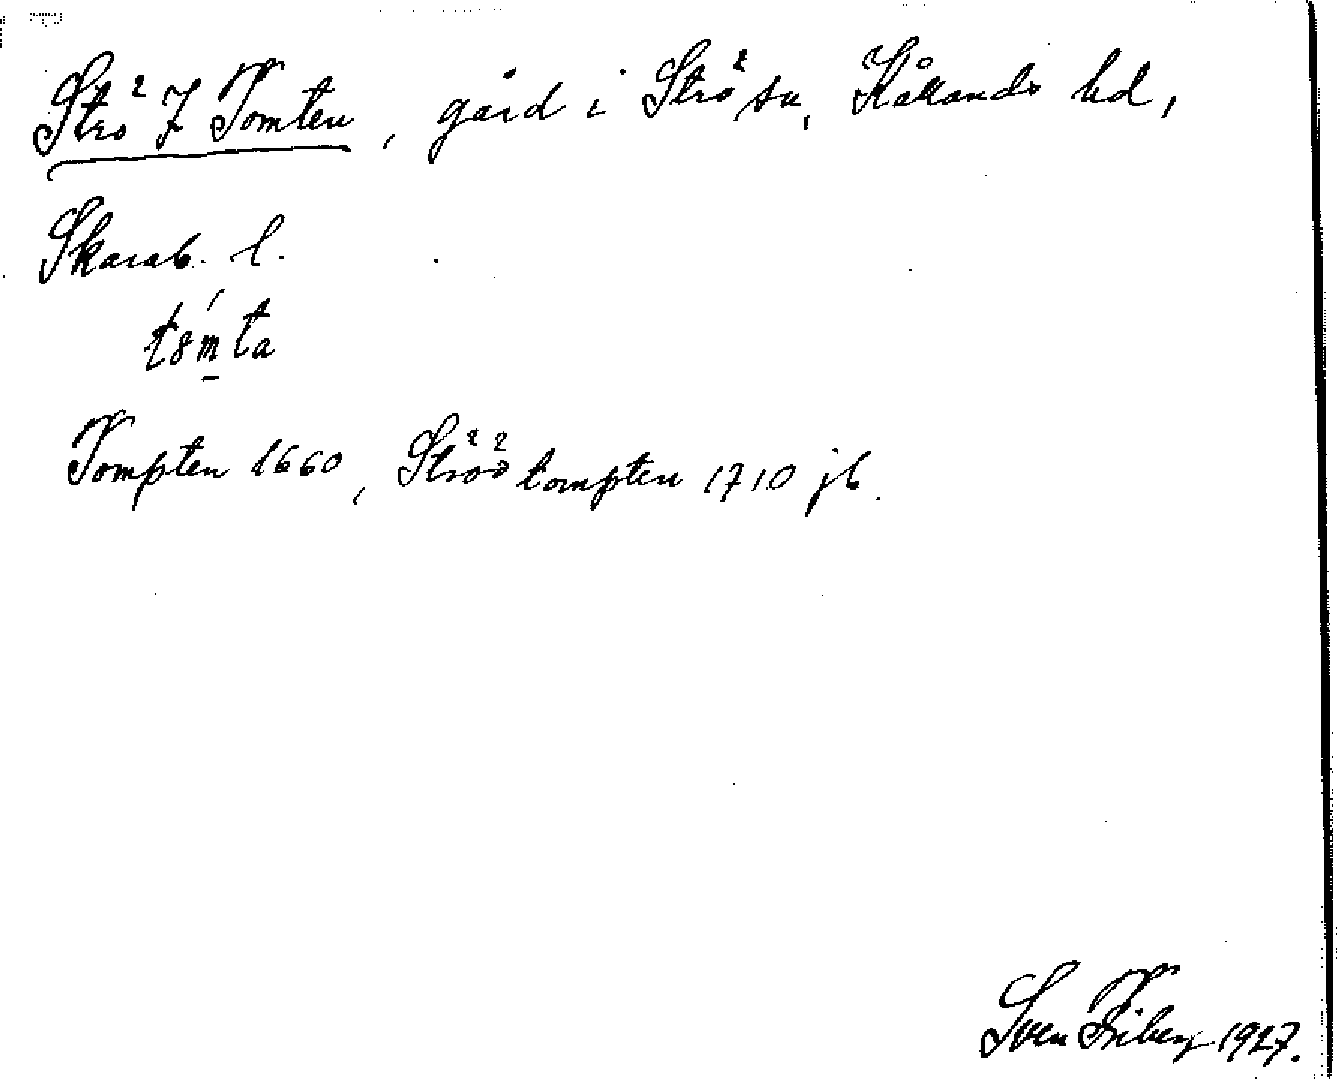 Strö 7 Tomten, gård i Strö sn, Kållands hd,
Skarab. l.
t8́m̱ta
Tompten 1660, Ströö tompten 1710 jb.
Sven Friberg 1927.